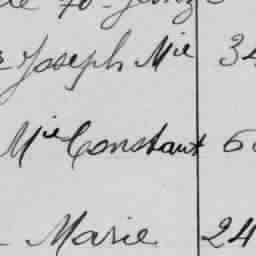 Joseph Mie 34
Mie Constant 6
Marie 24